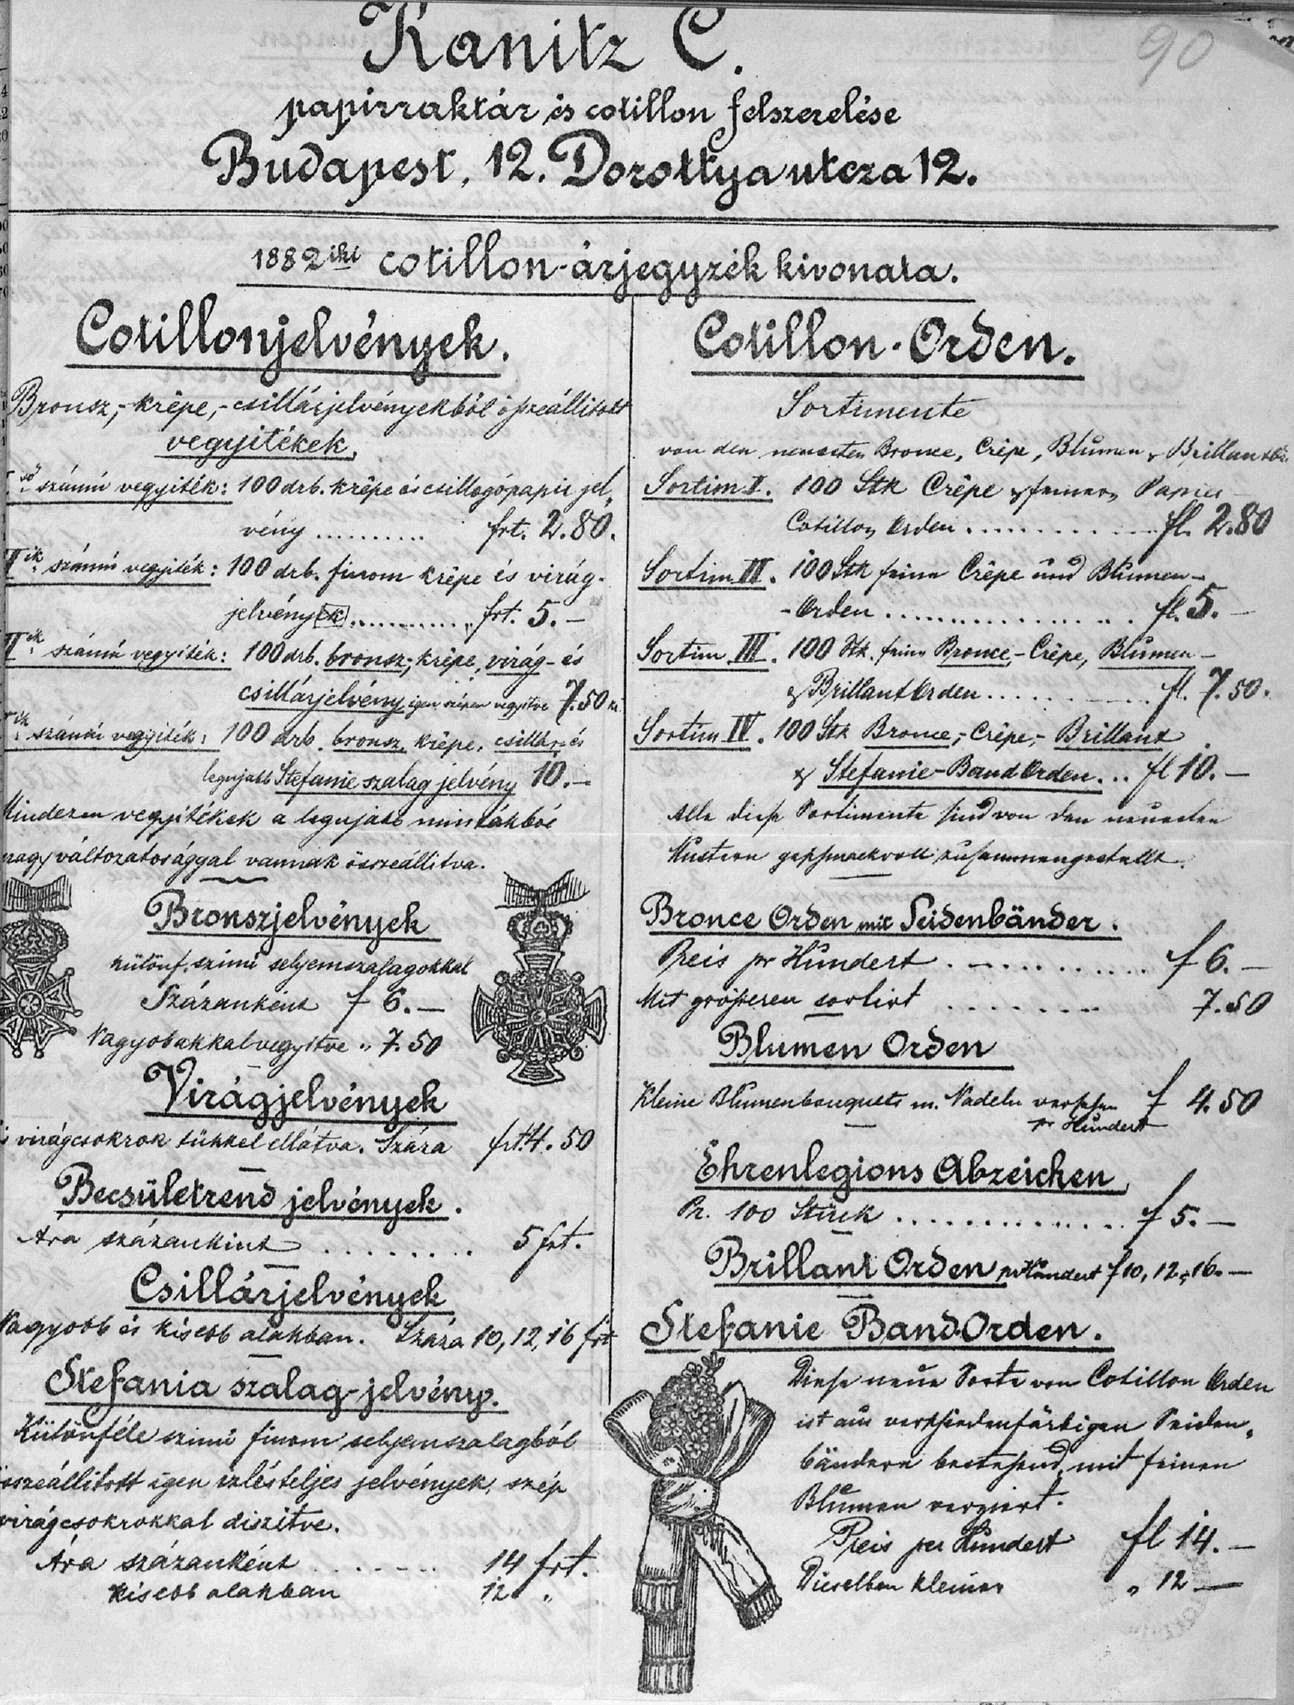 90
Kanitz C.
papirraktár és cotillon felszerelése
Budapest, 12. Dorottya utcza 12.
1882iki cotillon-árjegyzék kivonata.
Cotillonjelvények.
Bronsz,- krêpe,- csillárjelvényekből öszeállitott
vegyitékek.
ső számú vegyiték: 100 drb. krêpe és csillogópapir jel,
vény .......... frt. 2.80.
II ik számú vegyiték: 100 drb. finom krêpe és virág-
jelvények ............ frt. 5.—
ik számú vegyiték: 100 drb. bronsz,- krêpe, virág- és
csillárjelvény igen szépen vegyitve 7.50
ik számú vegyiték: 100 drb. bronsz, krêpe, csillár és
legujabb Stefanie szalag jelvény 10.—
Mindezen vegyitékek a legujabb mintákból
nagy változatosággal vannak összeállitva.
Bronszjelvények
különf. szinü selyemszalagokkal
Százanként f 6.—
Nagyobakkal vegyitve „ 7.50
Virágjelvények
virágcsokrok tükkel ellátva. Száza frt. 4.50
Becsületrend jelvények.
Ára százankint ......... 5 frt.
Csillárjelvények
Nagyobb és kisebb alakban. Száza 10, 12, 16 frt
Stefania szalag-jelvény.
Különféle szinü finom selyemszalagból
összeállitott igen izlésteljes jelvények, szép
virágcsokrokkal diszitve.
Ára százanként ....... 14 frt.
kisebb alakban 12 „
Cotillon-Orden.
Sortimente
von den neuesten Bronce, Crêpe, Blumen & Brillant
Sortim I. 100 Stk Crêpe & feinen Papier
Cotillon Orden .............. fl. 2.80
Sortim III. 100 Stk feine Crêpe und Blumen-
-Orden ................ fl. 5.—
Sortim III. 100 Stk. feine Bronce,- Crêpe, Blumen-
& Brillant Orden .......... fl. 7.50.
Sortim IV. 100 Stk Bronce,- Crêpe,- Brillant
& Stefanie-Band Orden... fl 10.—
Alle diese Sortimente sind von den neuesten
Mustern geschmackvoll zusammengestellt.
Bronce Orden mit Seidenbänder.
Preis pr Hundert ............ f 6.—
Mit grösseren sortirt ......... 7.50
Blumen Orden
Kleine Blumenbouquets m. Nadeln versehen f 4.50
pr Hundert
Ehrenlegions Abzeichen
Pr. 100 Stück ............. f 5.—
Brillant Orden pr Hundert f 10, 12, 16.—
Stefanie Band-Orden.
Diese neue Sorte von Cotillon Orden
ist aus verschiedenfärbigen Seiden-
bändern bestehend, mit feinen
Blumen verziert.
Preis per Hundert fl 14.—
Dieselben kleiner „ 12 —